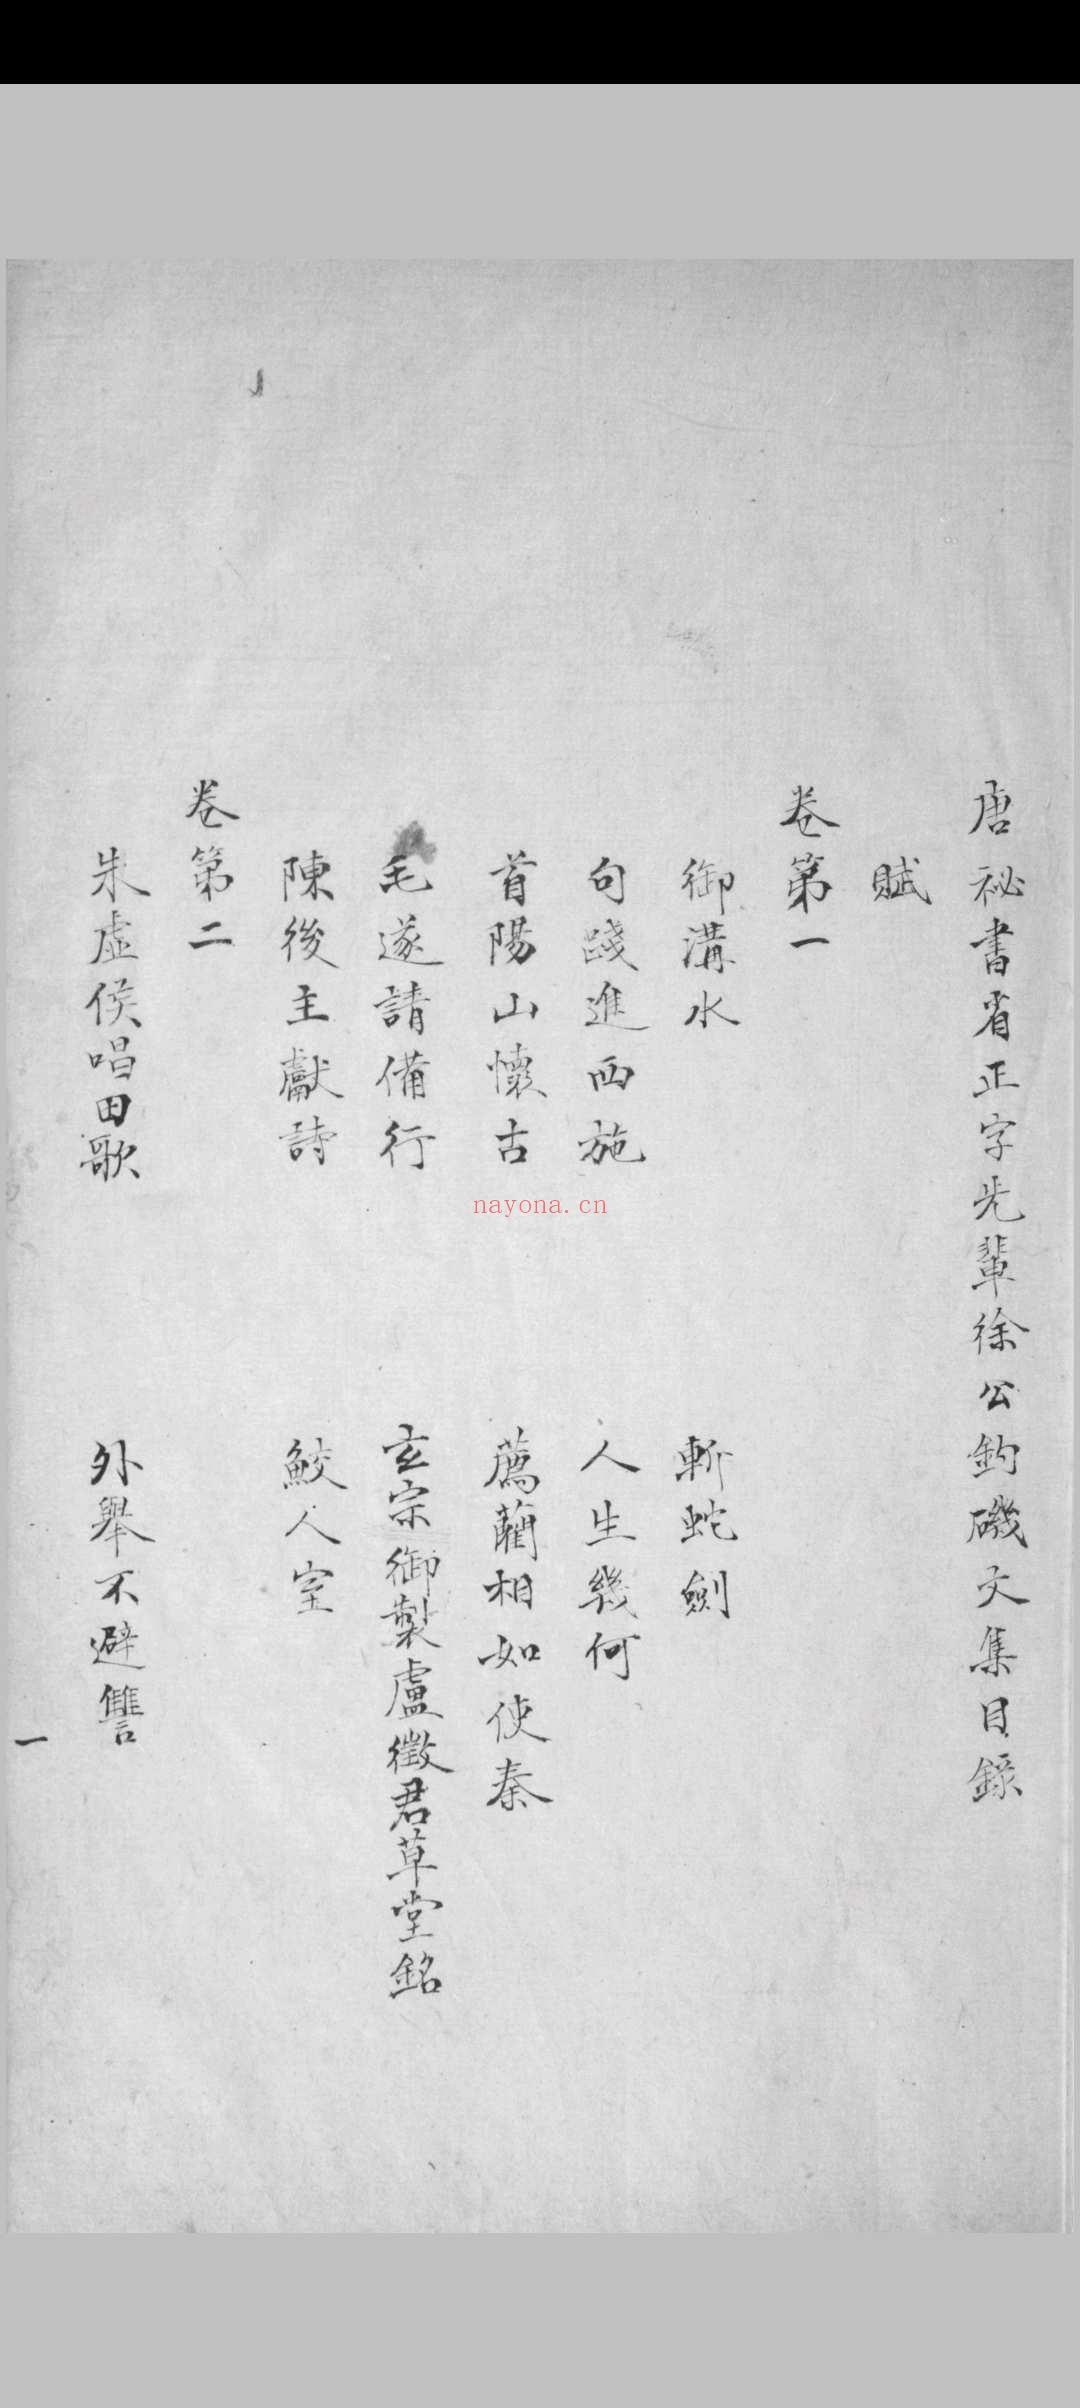 唐祕書省正字先輩徐公釣磯文集目錄
賦
卷第一
御溝水 斬蛇劍
句踐進西施 人生幾何
首陽山懷古 薦藺相如使秦
毛遂請備行 玄宗御製盧徵君草堂銘
陳後主獻詩 鮫人室
卷第二
朱虛侯唱田歌 外舉不避讐
一
nayona.cn